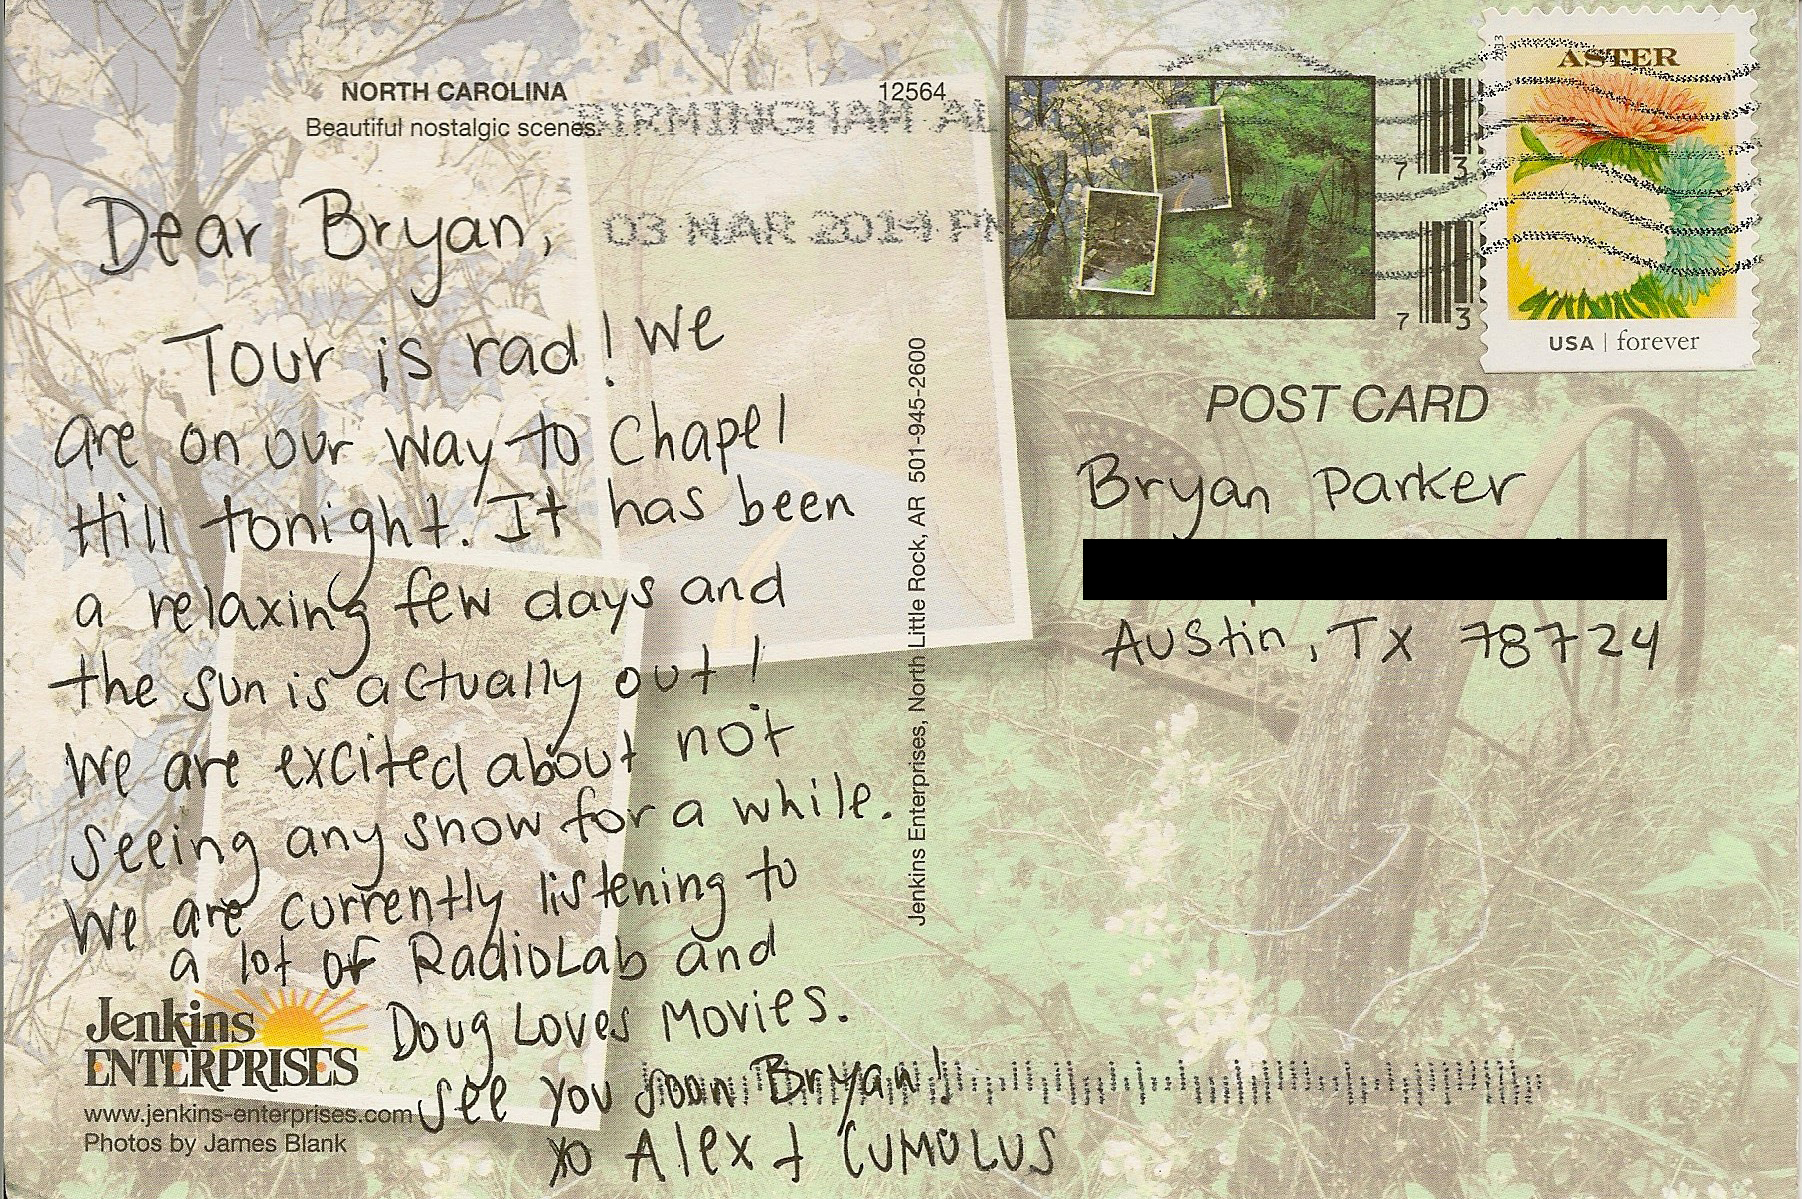 NORTH CAROLINA
Beautiful nostalgic scenes.
12564
BIRMINGHAM AL
03 MAR 2014 PM
Dear Bryan,
Tour is rad! We
are on our way to Chapel
Hill tonight. It has been
a relaxing few days and
the sun is actually out!
We are excited about not
seeing any snow for a while.
We are currently listening to
a lot of RadioLab and
Doug Loves Movies.
See you soon Bryan!
xo Alex + CUMULUS
Jenkins
ENTERPRISES
www.jenkins-enterprises.com
Photos by James Blank
Jenkins Enterprises, North Little Rock, AR 501-945-2600
7 3
7 3
2013
ASTER
USA | forever
POST CARD
Bryan Parker
Austin, TX 78724